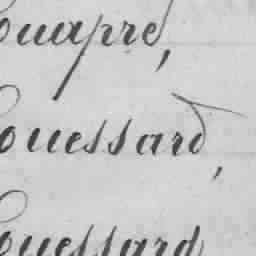 Couapré,
Couessard,
Couessard